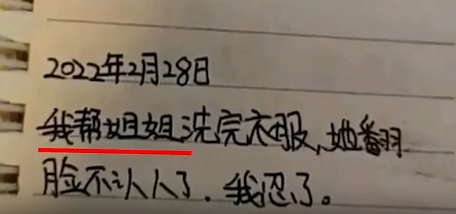 2022年2月28日
我帮姐姐洗完衣服,她翻
脸不认人了.我忍了。